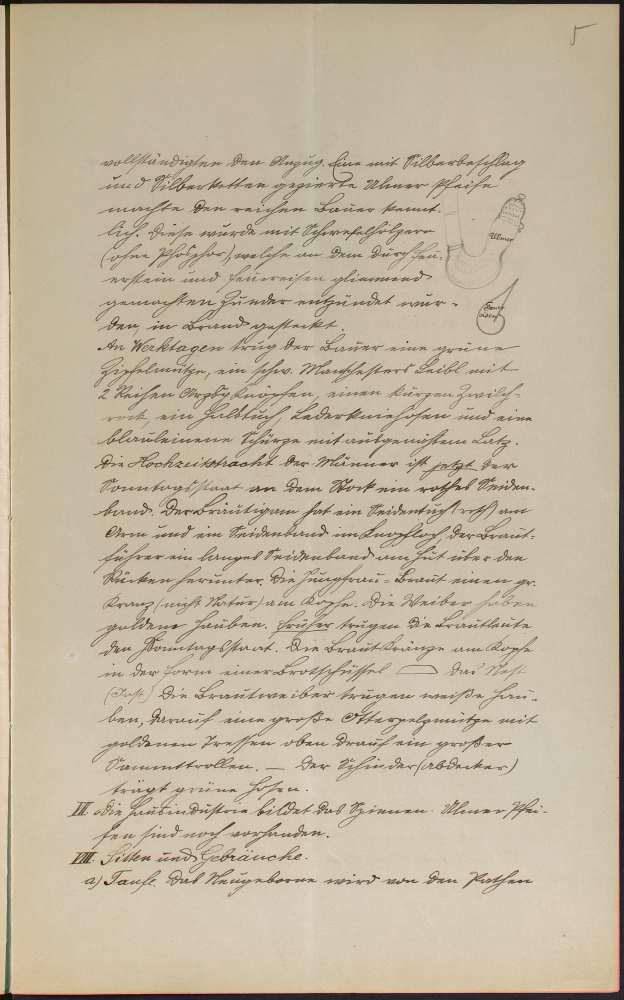 5
vollständigten den Anzug. Eine mit Silberbeschläg
und Silberketten gezierte Ulmer Pfeife
machte den reichen Bauer kennt-
lich. Diese wurde mit Schwefelhölzern
(ohne Phosphor), welche an dem durch Feu-
erstein und Feuereisen glimmend
gemachten Zunder entzündet wur-
den, in Brand gesteckt.
Ulmer
An Werktagen trug der Bauer eine grüne
Zipfelmütze, ein schw. Manchesters Leibl mit
2 Reihen Knöpfen, einen kurzen Zwilch-
rock, ein Halstuch, Lederkniehosen und eine
blauleinene Schürze mit ausgenähtem Latz.
Die Hochzeitstracht der Männer ist jetzt der
Sonntagsstaat an dem Rock ein rothes Seiden-
band. Der Bräutigam hat ein Seidentuch (roth) am
Arm und ein Seidenband im Knopfloch, der Braut-
führer ein langes Seidenband am Hut über den
Rücken herunter. Die Jungfrau-Braut einen gr.
Kranz (nicht Natur) am Kopfe. Die Weiber haben
goldene Hauben. Früher trugen die Brautleute
den Sonntagsstaat. Die Brautkränze am Kopfe
in der Form einer Brotschüssel Das Nest
Die Brautweiber trugen weiße Hau-
ben, darauf eine große Otterpelzmütze mit
goldenen Tressen oben drauf ein großer
Sammttrollen. — Der Schinder (Abdecker)
trägt grüne Hosen.
VII. Die Hausindustrie bildet das Spinnen. Ulmer Pfei-
fen sind noch vorhanden.
VIII. Sitten und Gebräuche.
a) Taufe. Das Neugeborne wird von den Pathen